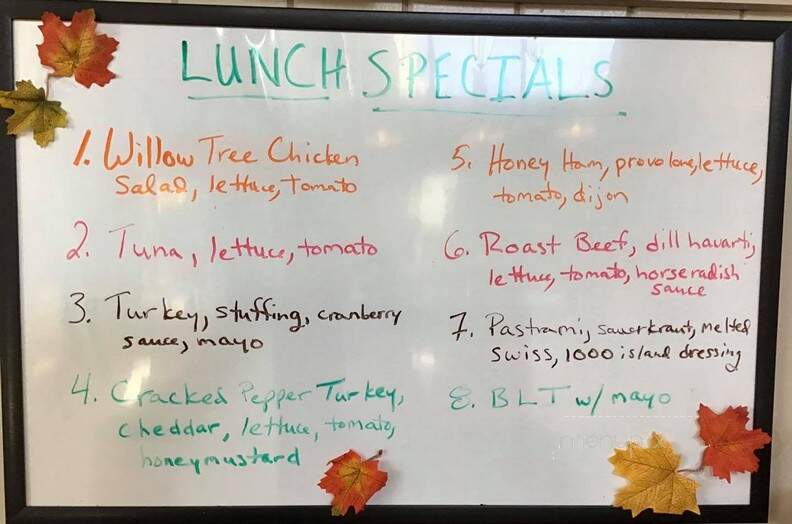 LUNCH SPECIALS
1. Willow Tree Chicken
Salad, lettuce, Tomato
2. Tuna, lettuce, tomato
3. Turkey, stuffing, cranberry
sauce, mayo
4. Cracked Pepper Turkey,
cheddar, lettuce, tomato,
honeymustard
5. Honey Ham, provolone, lettuce,
tomato, dijon
6. Roast Beef, dill havarti,
lettuce, tomato, horseradish
sauce
7. Pastrami, sauerkraut, melted
swiss, 1000 island dressing
8. BLT w/ mayo